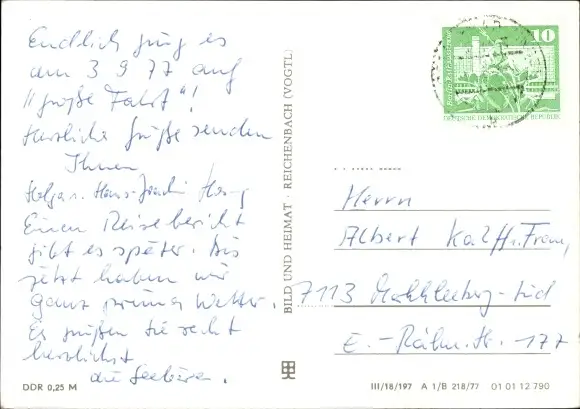 Endlich ging es
am 3 9 77 auf
"große Fahrt"!
Herzliche Grüße senden
Ihnen
Helga u. Hans-Joachim
Einen Reisebericht
gibt es später. Bis
jetzt haben wir
ganz prima Wetter.
Es grüßen Sie recht
herzlichst
die Seebären.
DDR 0,25 M
BILD UND HEIMAT · REICHENBACH (VOGTL)
10
DEUTSCHE DEMOKRATISCHE REPUBLIK
Herrn
Albert u. Frau,
7113 Markkleeberg-Süd
E.-Rähm.Str. 177
III/18/197 A 1/B 218/77 01 01 12 790